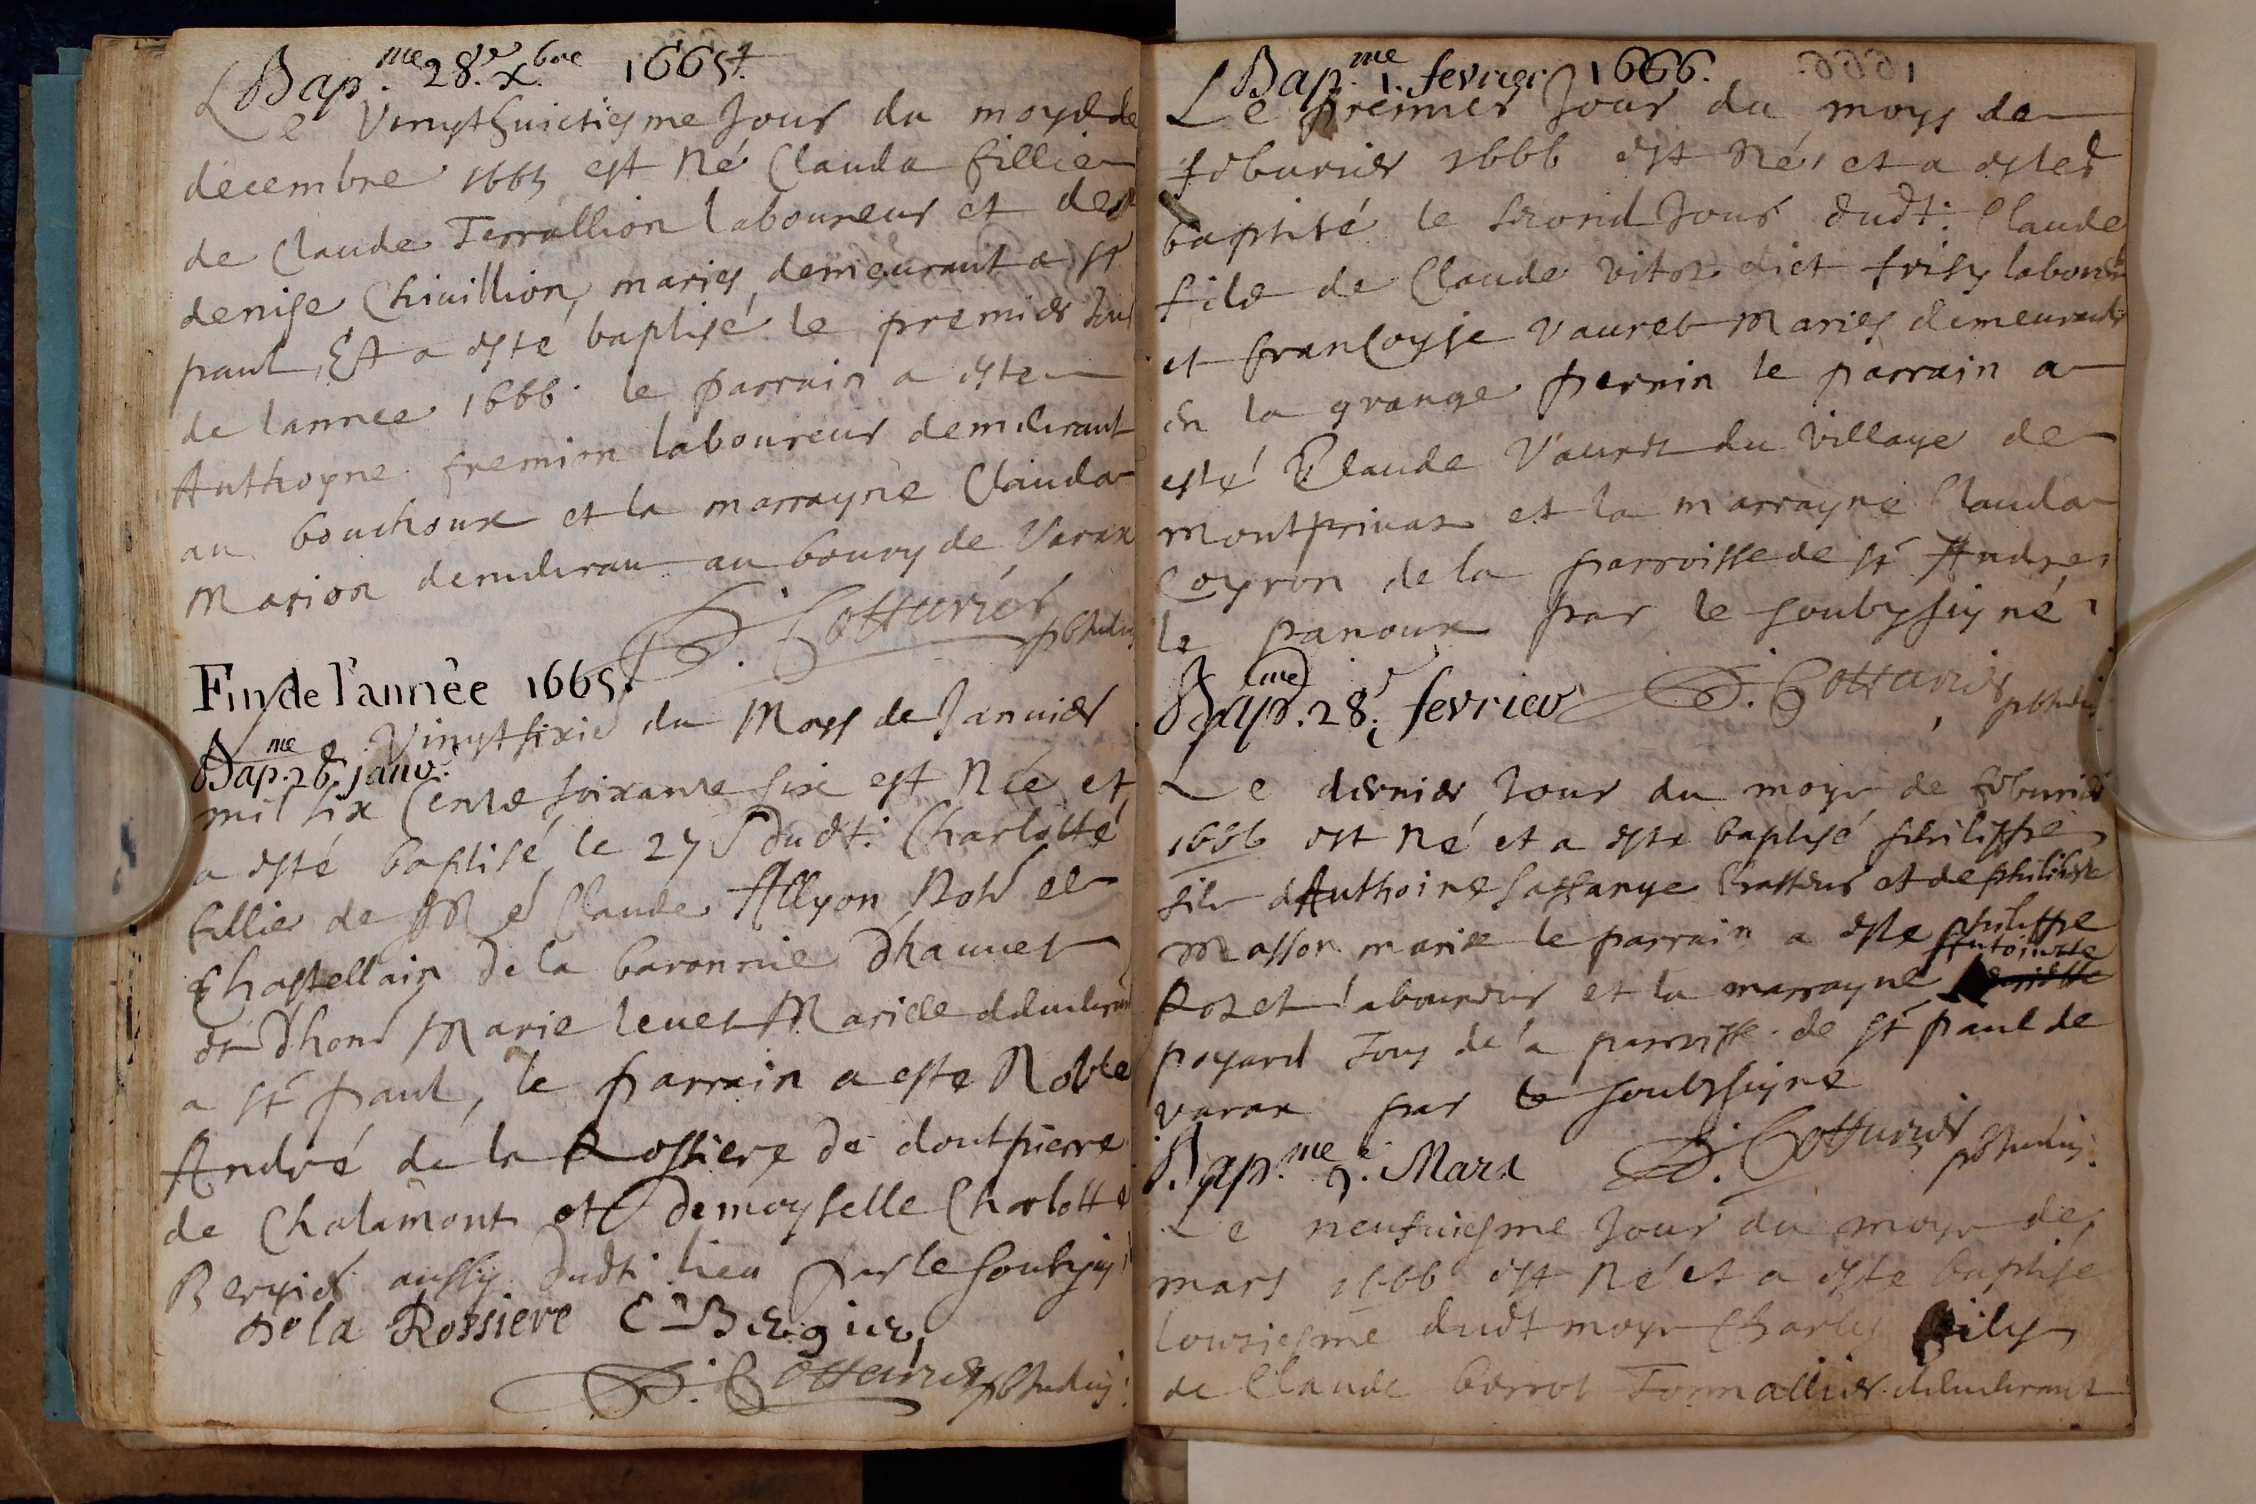 Bap.me 28.e Xbre 1665.
Le Vingthuictiesme Jour du moys de
decembre 1665 est Né Clauda fillie
de Claude Terrallion laboureur et de
denise Chivillion, mariés, demeurant a St
paul, Et a esté baptisé le premier Jour
de lannee 1666. le parrain a este
Anthoyne fremion laboureur demeurant
au bouchoux et la marrayne Clauda
Marion demeuran au bourg de Varax
Cotturier
Fin de l'année 1665.
Bap.me 26. janv.
Vingtsixie du Moys de Janvier
mil six Cents soixante six est Née et
a esté baptisé le 27 dudt: Charlotte
fillie de M.e Claude Allyon No.re et
Chastellain de la baronnie dhauvet
et dhon. Marie levet Mariée demeurant
a St paul, le parrain a este Noble
André de la Rossiere de dontpierre
de Chalamont et demoyselle Charlotte
Bergier aussy dudt: lieu par le soubsig
De la Rossiere C Bergier
Cotturier
Bap.me 1. fevrier 1666.
Le premier Jour du moys de
feburier 1666 est Né, et a estes
baptisé le second Jour dudt: Claude
fils de Claude Vitoz dict frisy labour
et francoyse Vauret Mariés demeurants
en la grange perrin le parrain a
esté Claude Vauret du Village de
Montprivaz et la marrayne Clauda
Coyron de la parroisse de St Andre
le panoux par le soubsigné
Bap.me 28. fevrier
Cotturier
Le dernier Jour du moys de feburier
1666 est Né et a este baptisé philippe
fils dAnthoine Saffange et de philiberte
Masson mariée le parrain a este philippe
Antoinette
Rozet laboureur et la marrayne
poyard Tous de la parroisse de St paul de
varax par le soubsigné
Cotturier
Bap.me 9.e Mars
Le neufviesme Jour du moys de
mars 1666 est Né et a este baptise
lonziesme dudt moys Charles fils
de Claude perrot Tonnallier demeurant